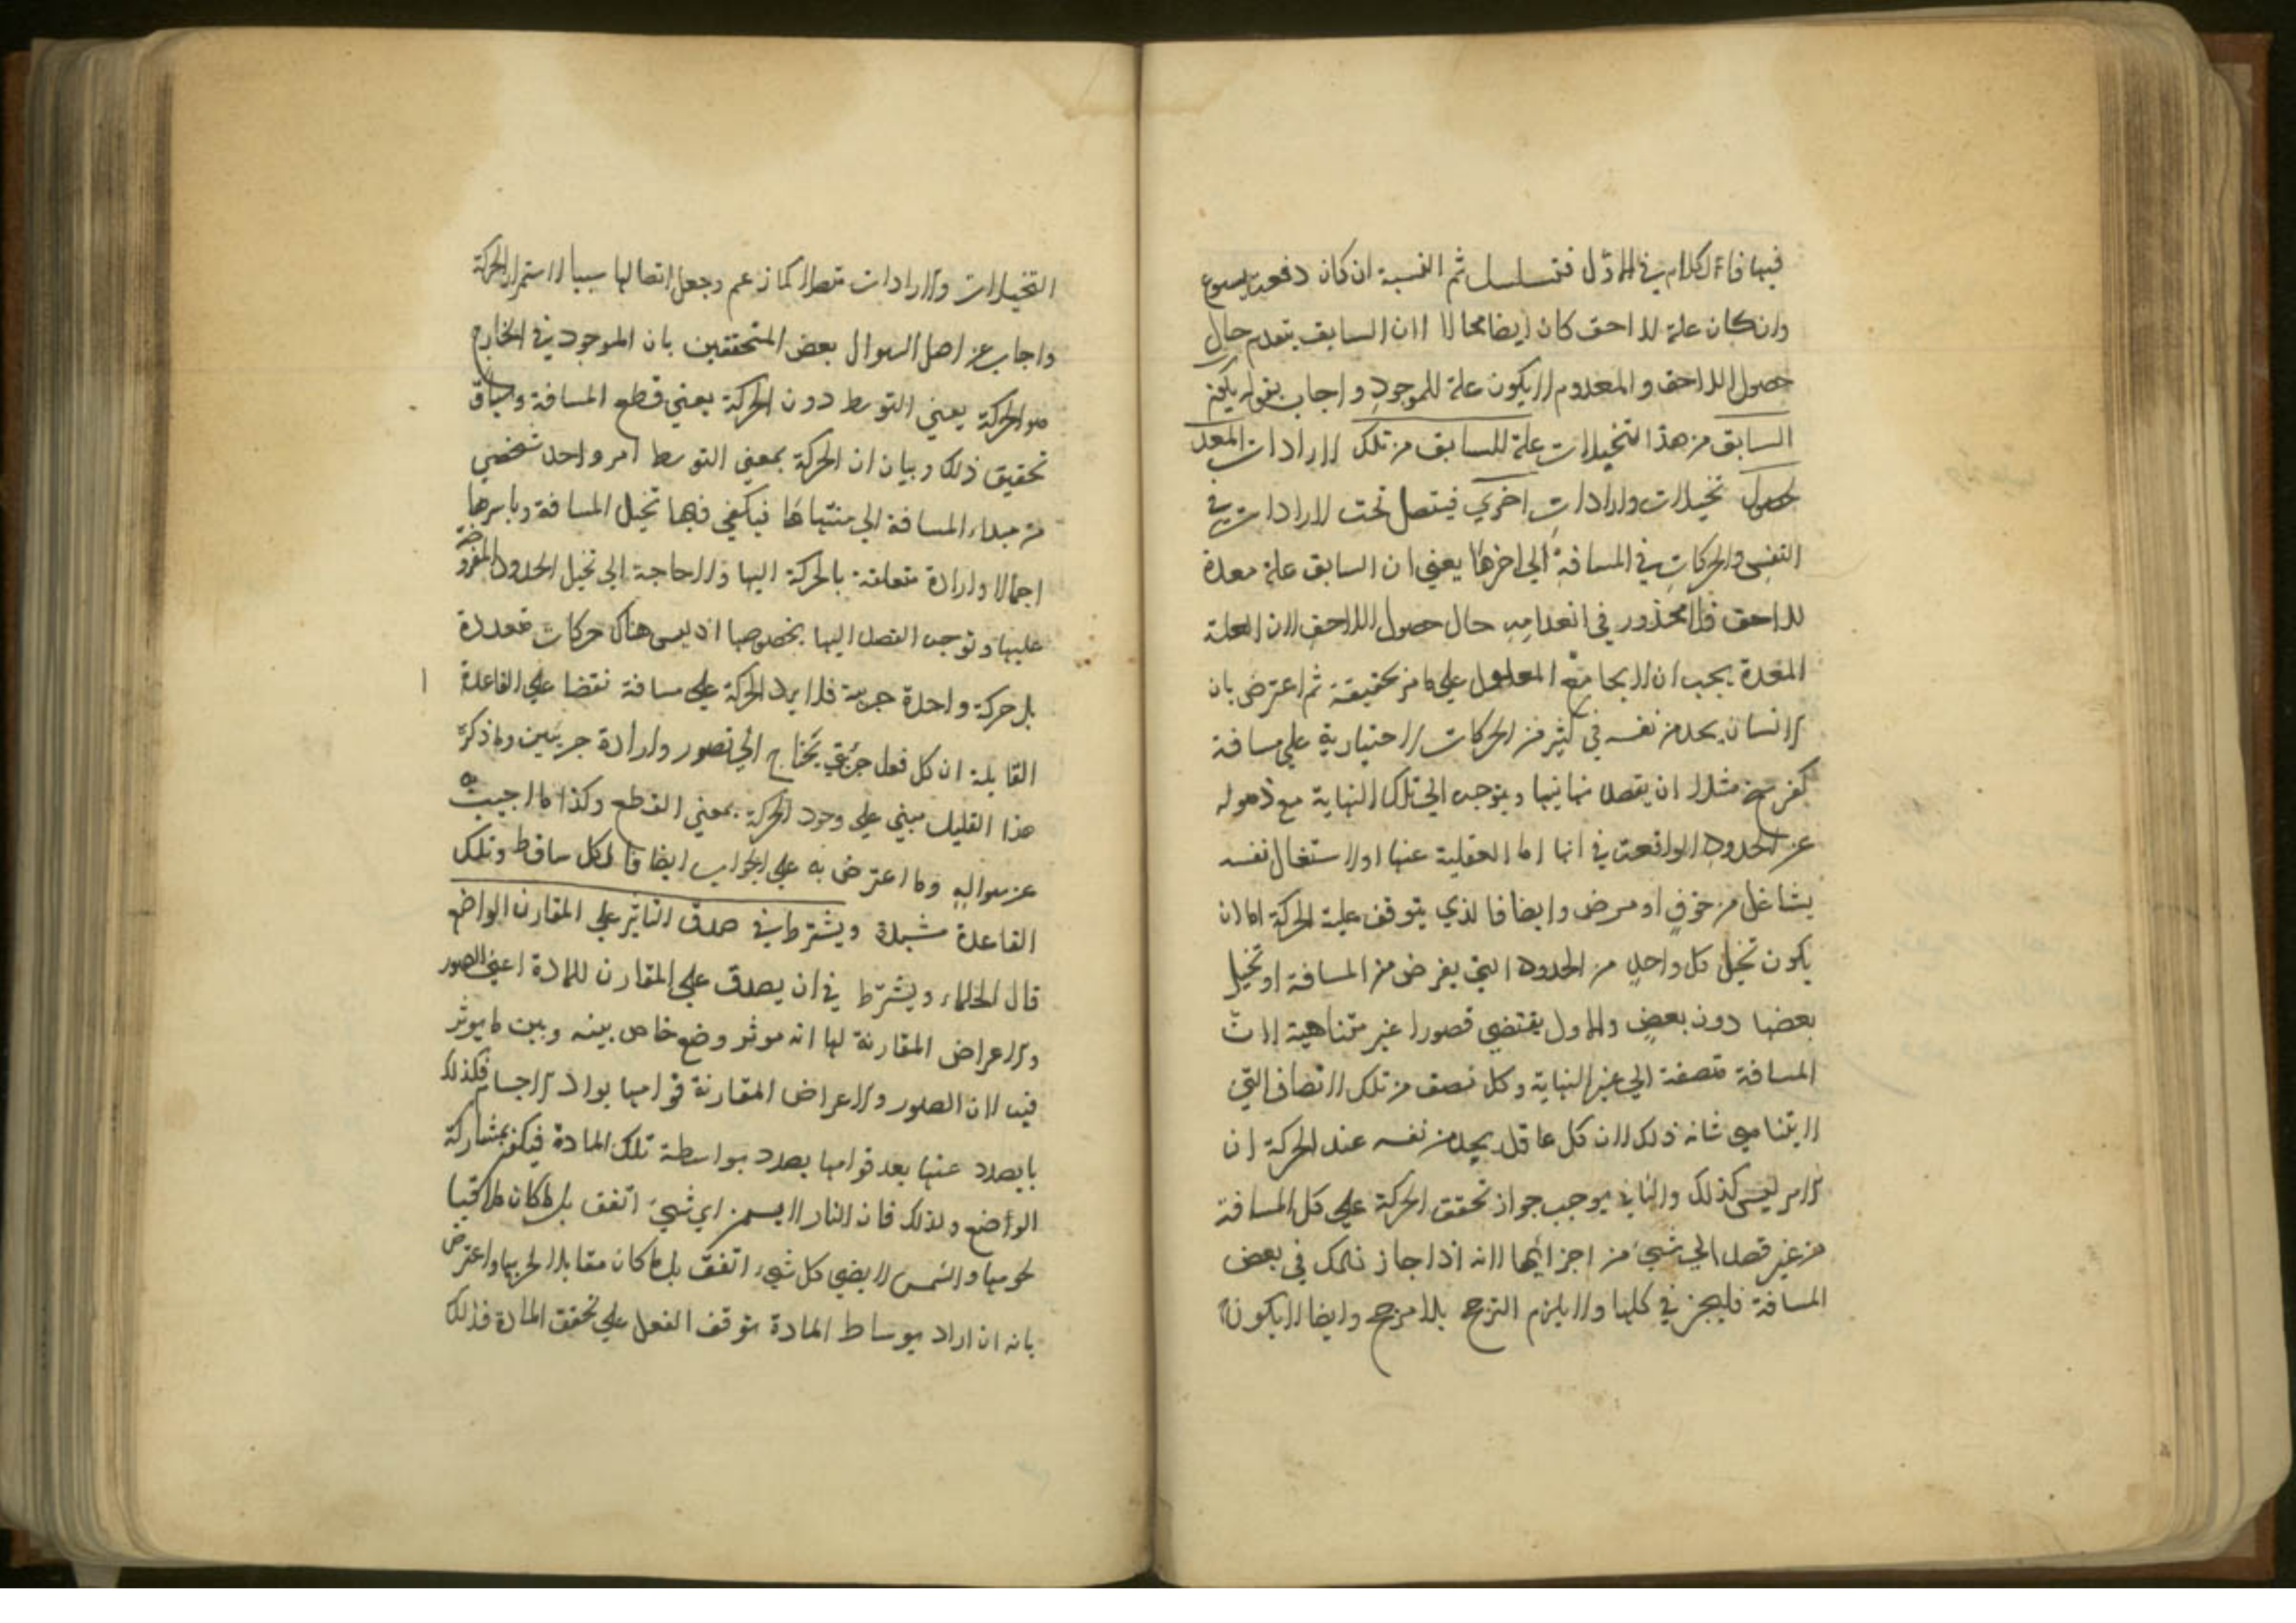 فيها فان الكلام في الاول فتسلسل ثم النسبة ان كان دفعة
وان كان علة للاحق كان ايضا محالا لان السابق ينعدم حال
حصول اللاحق والمعدوم لا يكون علة للموجود واجاب بقوله يكون
السابق من هذا التخيلات علة للسابق من تلك الارادات المعد
لحصول تخيلات وارادات اخري فيتصل تحت الارادات في
النفس والحركات في المسافة الي اخرها يعني ان السابق علة معدة
للاحق فلا محذور في انعدامه حال حصول اللاحق لان العلة
المعدة يجب ان لا يجامع المعلول علي ما مر تحقيقه ثم اعترض بان
الانسان يجد من نفسه في كثير من الحركات الاختيارية علي مسافة
كفرسخ مثلا ان يقصد نهايتها ويتوجه الي تلك النهاية مع ذهوله
عن الحدود الواقعة في اثنا اما لغفلته عنها او لاشتغال نفسه
بشاغل من خوف او مرض وايضا فالذي يتوقف عليه الحركة اما ان
يكون تخيل كل واحد من الحدود التي يفرض من المسافة او تخيل
بعضها دون بعض والاول يقتضي تصورا غير متناهية لان
المسافة متصفة الي غير النهاية وكل نصف من تلك الانصاف التي
لا يتناهي شانه ذلك لان كل عاقل يجد من نفسه عند الحركة ان
الامر ليس كذلك والثاني يوجب جواز تحقق الحركة علي كل المسافة
من غير قصد الي شيء من اجزائها لانه اذا جاز ذلك في بعض
المسافة فليجز في كلها والا يلزم الترجح بلا مرجح وايضا لا يكون
التخيلات والارادات متصلا كما زعم وجعل اتصالها سببا لاستمرار الحركة
واجاب عن اصل السوال بعض المتحققين بان الموجود في الخارج
هو الحركة يعني التوسط دون الحركة يعني قطع المسافة وسياق
تحقيق ذلك وبيان ان الحركة بمعني التوسط امر واحد شخصي
من مبداء المسافة الي منتهاها فيكفي فيها تخيل المسافة وباسرها
اجمالا وارادة متعلقة بالحركة اليها ولا حاجة الي تخيل الحدود المفروضة
عليها وتوجه القصد اليها بخصوصها اذ ليس هناك حركات متعددة
بل حركة واحدة جزيية فلا يرد الحركة علي مسافة نقضا علي القاعدة
القايلة ان كل فعل جزيي يحتاج الي تصور وارادة جزيين وما ذكره
هذا القليل مبني علي وجود الحركة بمعني القطع وكذا ما اجيب به
عن سواله وما اعترض به علي الجواب ايضا فالكل ساقط وتلك
القاعدة مشيدة ويشترط في صدق التاثير علي المقارن الواضع
قال الحكماء ويشترط في ان يصدق علي المقارن للمادة اعني الصور
والاعراض المقارنة لها انه موثر وضع خاص بينه وبين ما يوثر
فيه لان الصور والاعراض المقارنة قوامها بواد الاجسام فكذلك
ما يصدر عنها بعد قوامها يصدر بواسطة تلك المادة فيكون بمشاركة
الواضع ولذلك فان النار لا يسخن اي شيء اتفق بل ما كان ملاقيا
لجرمها والشمس لا يضي كل شيء اتفق بل ما كان مقابلا لجرمها واعترض
بانه ان اراد بوساط المادة توقف الفعل علي تحقق المادة فذلك